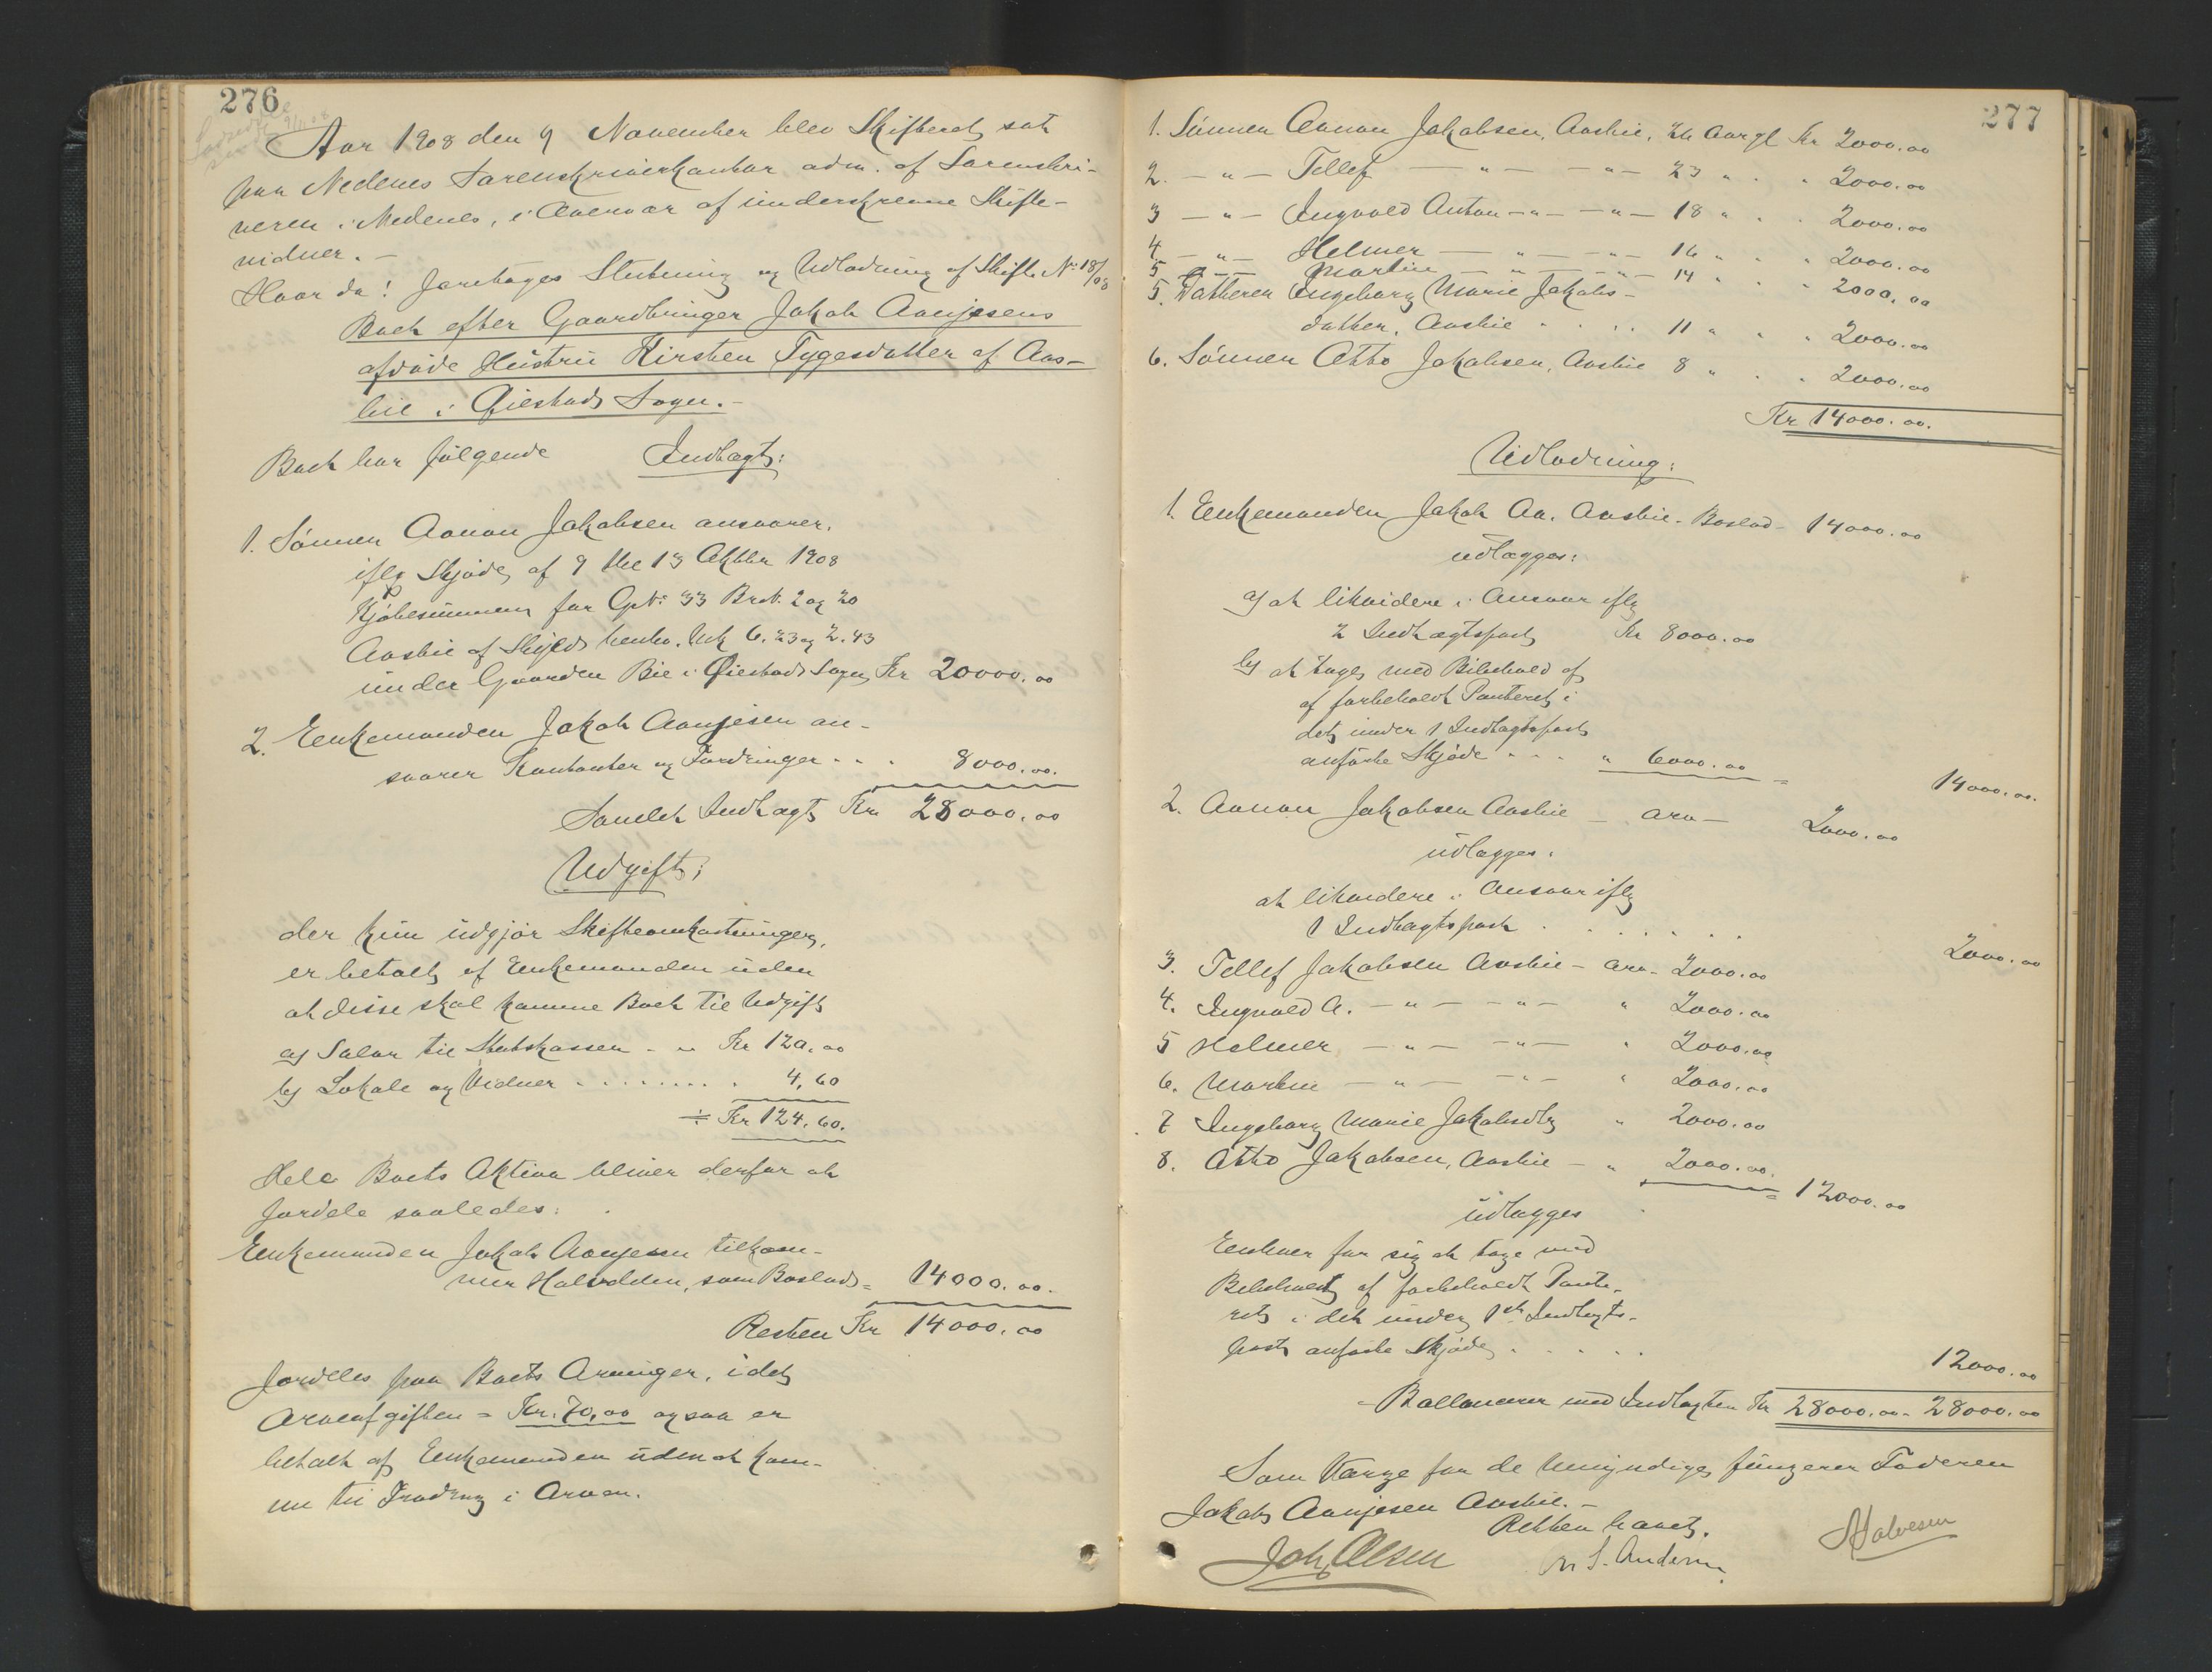 276
Aar 1908 den 9 November blev Skifteret sat
paa Nedenes Sorenskriverkontor adm. af Sorenskri-
veren i Nedenes, i Overvær af underskrevne Skifte-
vidner.-
Hvor da: foretages Slutning og Udlodning af Skifte No 18/08
Boet efter Gaardbruger Jakob Aanjesens
afdøde Hustru Kirsten Tygesdatter af Aas-
bie i Øiestads Sogn.-
Boet har følgende Indtægt:
1. Sønnen Aanon Jakobsen ansvarer,
iflg Skjøde af 9 thl 13 Oktbr 1908
Kjøbesummen for Gr.No 33 Br.No. 2 og 20
Aasbie af Skyld henhv. Mk 6.23 og 2.43
under Gaarden Bie i Øiestads Sogn Kr 20000.00
2. Enkemanden Jakob Aanjesen an-
svarer Kontanter og Fordringer . . . 8000.00.
Samlet Indtægt Kr. 28000.00
Udgift;
der kun udgjør Skifteomkostninger,
er betalt af Enkemanden uden
at disse skal komme Boet til Udgift
a) Salær til Statskassen - „ Kr 120.00
b) Lokale og Vidner . . . . . . . . 4,60
÷ Kr 124.60.
Hele Boets Aktiva bliver derfor at
fordele saaledes:
Enkemanden Jakob Aanjesen tilkom-
mer Halvdelen, som Boslod = 14000.00.
Resten Kr 14000.00
fordeles paa Boets Arvinger, idet
Arveafgiften = Kr. 70,00 ogsaa er
betalt af Enkemanden uden at kom-
me til Fradrag i Arven.
277
1. Sønnen Aanon Jakobsen, Aasbie, 26 Aar gl Kr 2000.00
2. -„- Tellef -„- -„- 23 „ . „ 2000.00
3 -„- Ingvald Anton -„- -„- 18 „ . . 2000.00
4. -„- Helmer -„- -„- 16 „ . „ 2000.00
5 -„- Martin -„- -„- 14 „ . „ 2000.00
5. Datteren Ingeborg Marie Jakobs-
datter, Aasbie . . . . 11 „ . „ 2000.00
6. Sønnen Otto Jakobsen, Aasbie 8 „ . . 2000.00
Kr 14000.00.
Udlodning:
1. Enkemanden Jakob Aa. Aasbie - Boslod - 14000.00
udlægges:
a) at likvidere i Ansvar iflg
2 Indtægtspost Kr 8000.00
b) at tage med Bibehold af
af forbeholdt Panteret i
det under 1 Indtægtspost
anførte Skjøde . . . „ 6000.00 = 14000.00.
2. Aanon Jakobsen Aasbie - Arv - 2000.00
udlægges:
at likvidere i Ansvar iflg
1 Indtægtspost . . . . . . . 2000.00
3. Tellef Jakobsen Aasbie - Arv - 2000.00
4. Ingvald A. -„- -„- „ 2000.00
5 Helmer -„- -„- „ 2000.00
6. Martin -„- -„- „ 2000.00
7 Ingeborg Marie Jakobsdtr „ 2000.00
8. Otto Jakobsen, Aasbie - „ 2000.00. = 12000.00
udlægges
Enhver for sig at tage med
Bibehold af forbeholdt Pante-
ret i det under 1ste Indtægts-
post anførte Skjøde . . . . . 12000.00
- Ballancerer med Indtægten Kr 28000.00 - 28000.00
Som Værge for de Umyndige fungerer Faderen
Jakob Aanjesen Aasbie.-
Retten hævet.
Joh Olsen
M S. Andersen
Halvesen